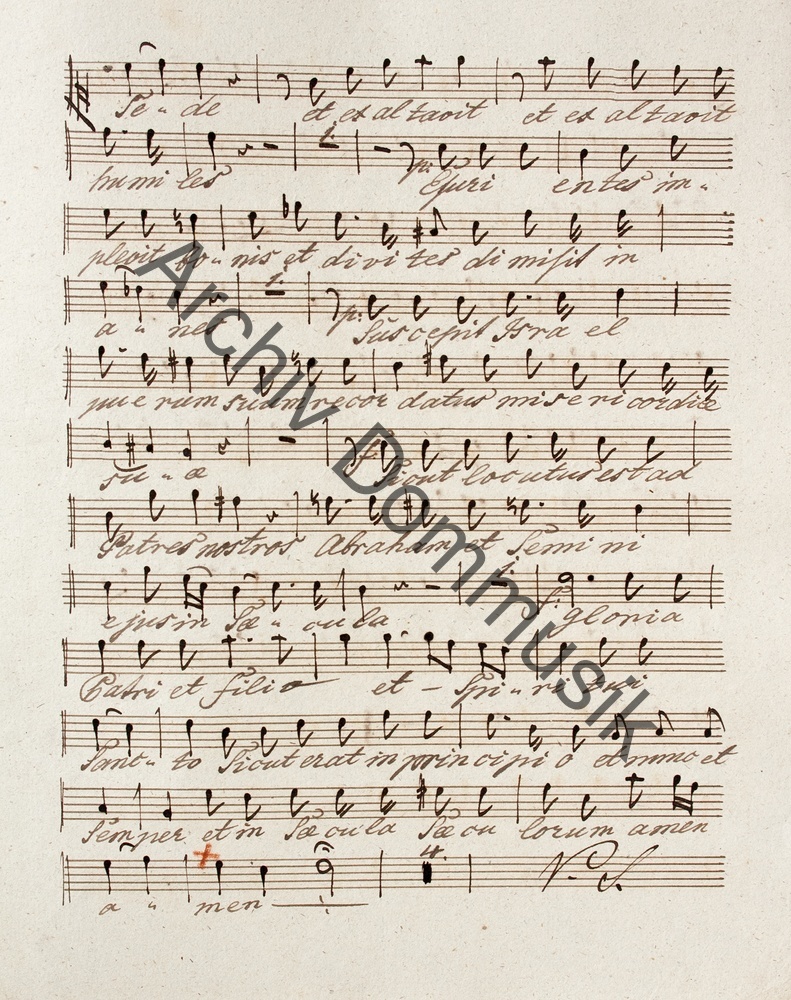 Se - de et exaltavit et exaltavit
humiles 1. p: Esuri entes im-
plevit bo - nis et divites dimisit in
a - nes 1. p: Suscepit Isra el
puerum suum recordatus misericordiæ
su - æ f Sicut locutus est ad
Patres nostros Abraham et Semini
ejus in Sæ - cula 1. f: gloria
Patri et filio et - Spi - ritui
Sanc - to Sicut erat in principio et nunc et
Semper et in Sæcula Sæculorum amen
a - men 4. V. S.
Archiv Dommusik